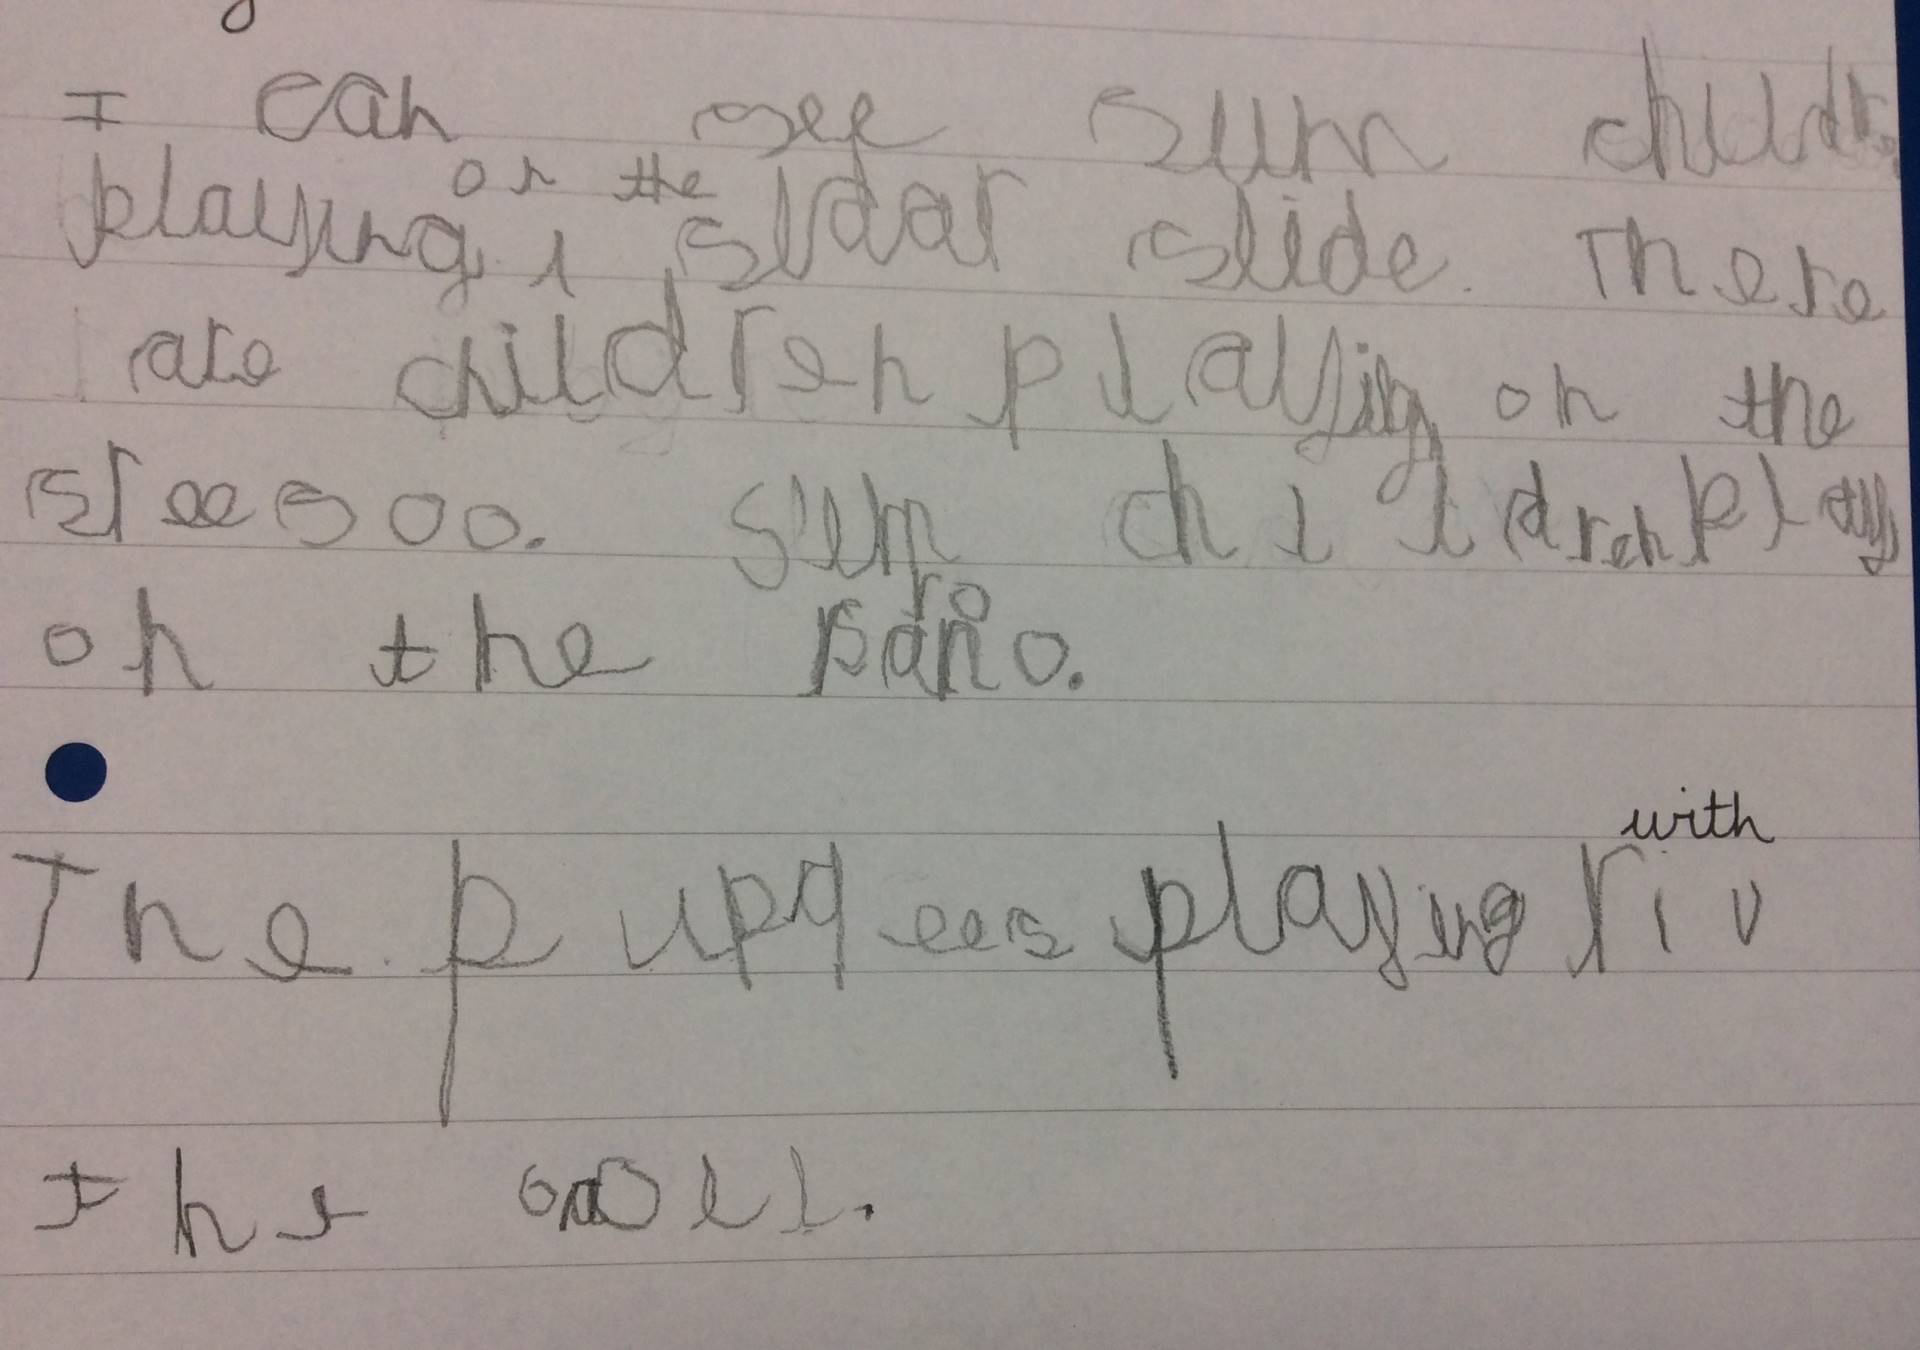 I can see sum childre
playing on the sldar slide. There
are children playing on the
sree soo. sum children play
on the
with
The puppees playing riv
the